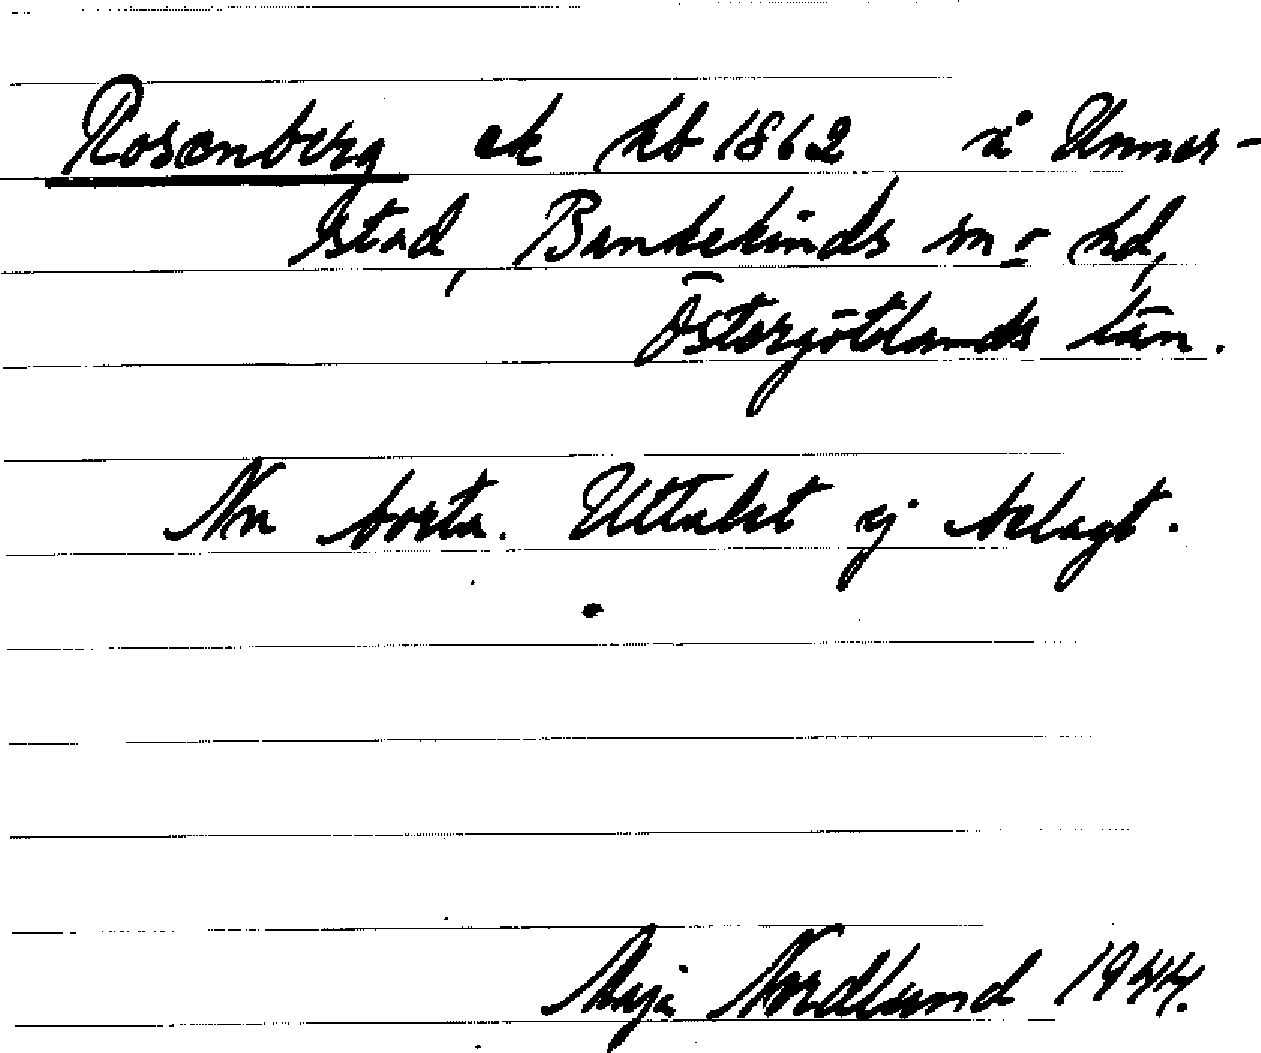 Rosenberg ek hb 1862 å Ummer-
stad, Bankekinds sn o hd,
Östergötlands län.
Nu borta. Uttalet ej belagt.
Maja Nordlund 1944.